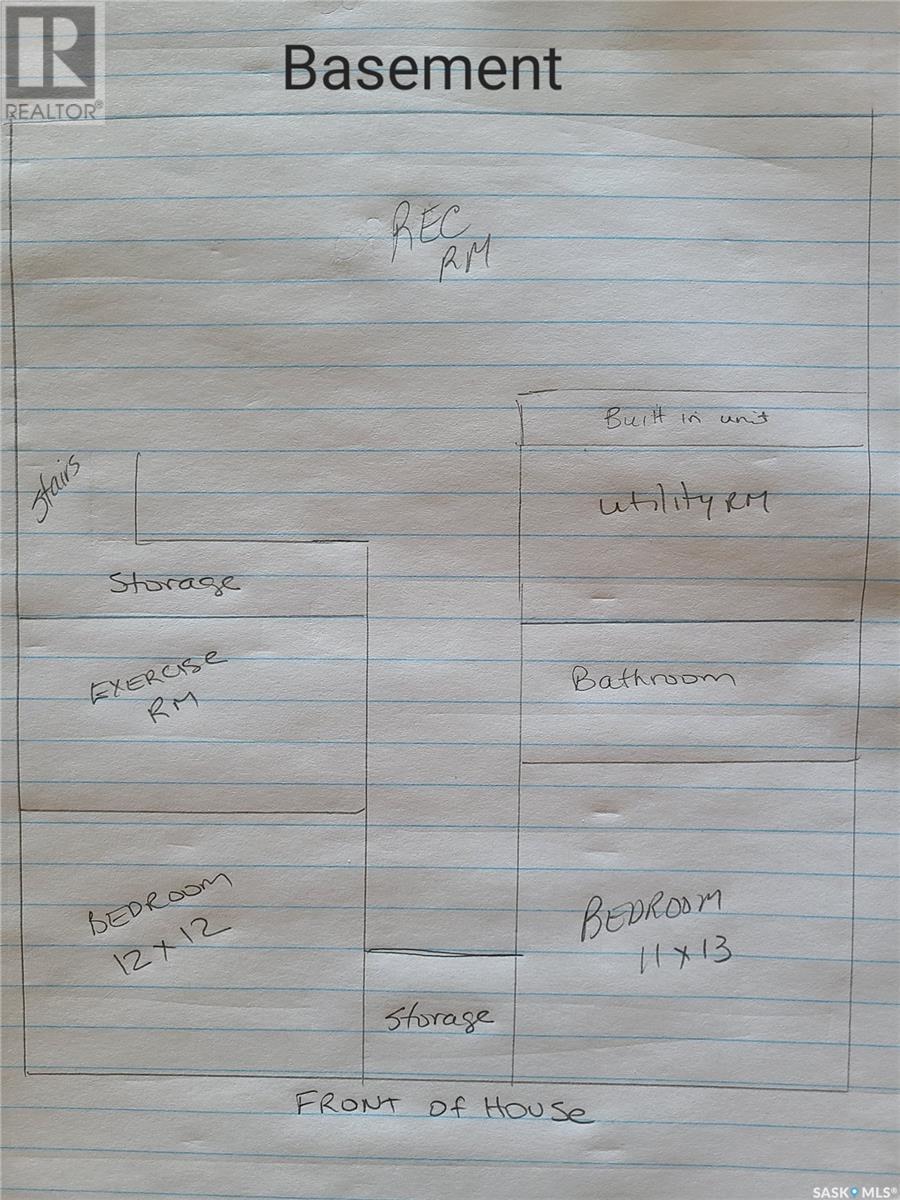 R
REALTOR®
Basement
REC
RM
Built in unit
Stairs
utility RM
Storage
EXERCISE
RM
Bathroom
BEDROOM
12 x 12
BEDROOM
11 x 13
Storage
FRONT of HOUSe
SASK MLS®